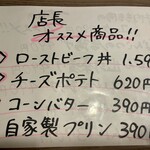 店長
オススメ商品!!
ローストビーフ丼 1.59
チーズポテト 620円
コーンバター 390円
自家製プリン 390